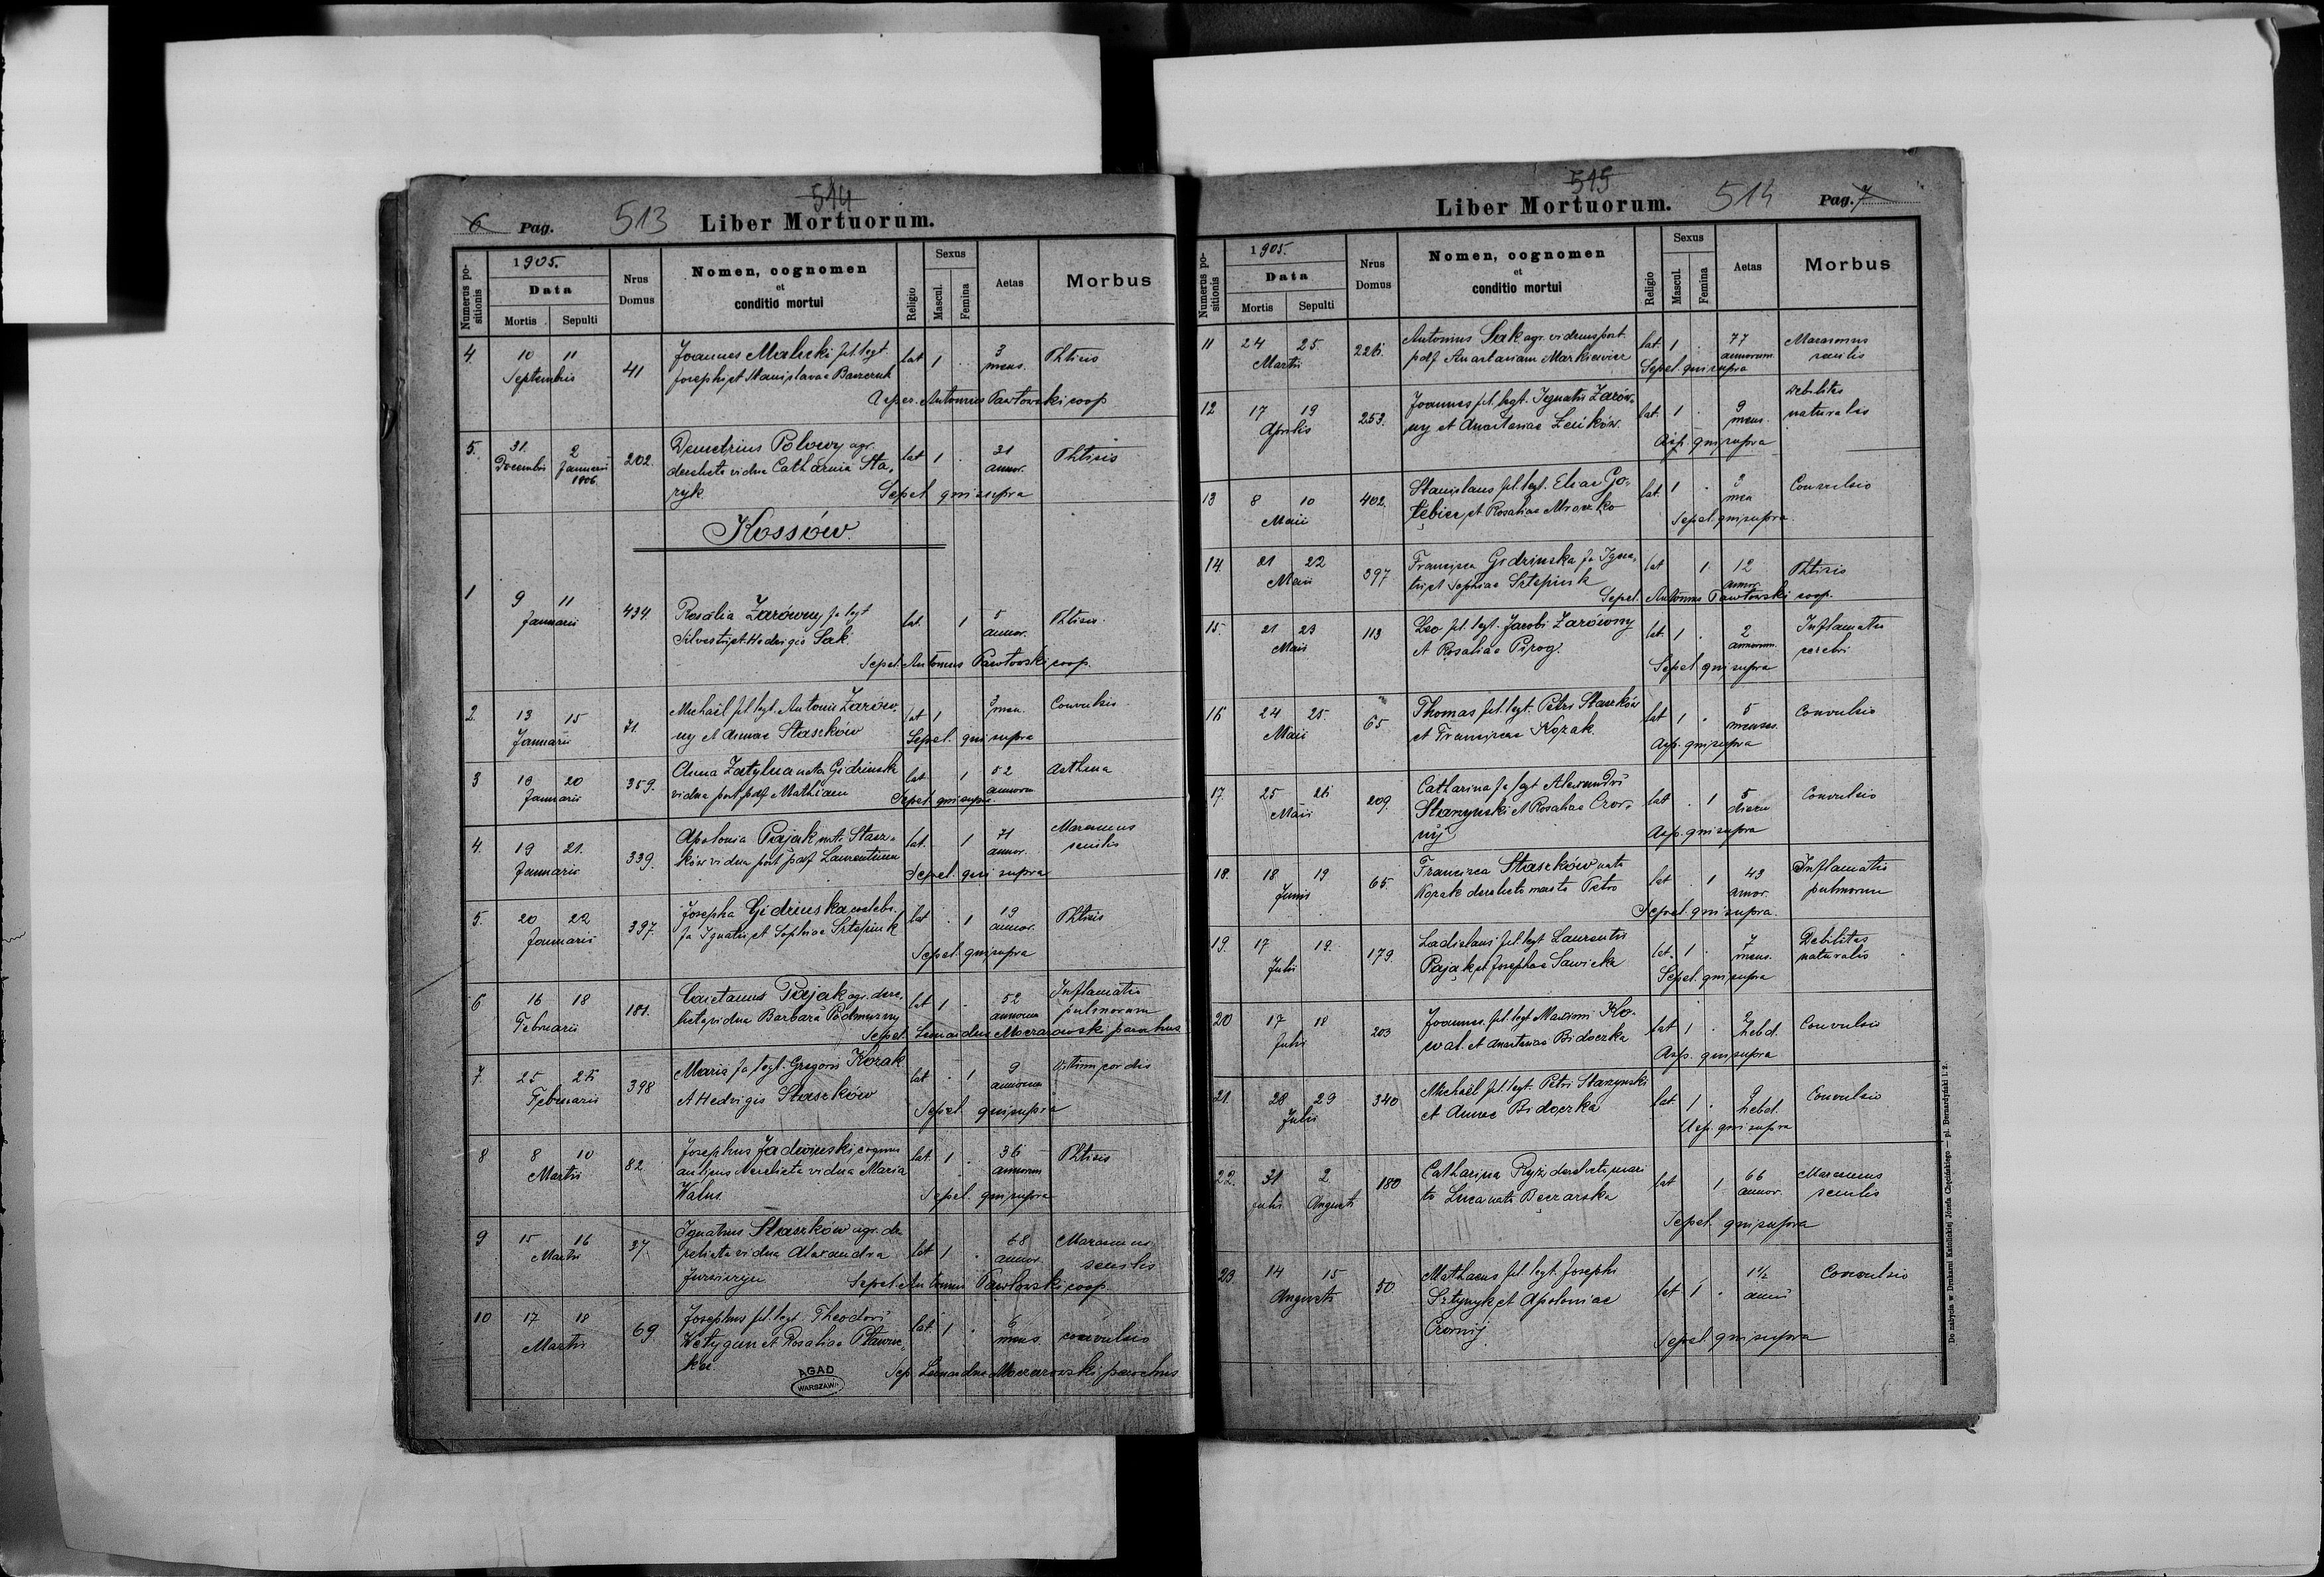 6 Pag. 513 514 Liber Mortuorum.
Numerus positionis 1905. Data Mortis Sepulti Nrus Domus Nomen, cognomen et conditio mortui Religio Sexus Mascul. Femina Aetas Morbus
4. 10 11 Septembris 41 Joannes Malicki fil. legt lat 1 3 mens. Phtisis
Josephi et Stanislavae Baszczuk
Asper. Antonius Pawłowski coop
5. 31 Decembris 2 Januarii 1906 202. Demetrius Polowy agr. lat 1 31 annor. Phtisis
derelicta vidua Catharina Sta-
ryk Sepel qui supra
Kossów.
1 9 11 Januarii 434. Rosalia Zarówny fa legt lat. 1 5 annor. Phtisis
Silvestri et Hedvigis Sak
Sepel. Antonius Pawłowski coop.
2. 13 15 Januarii 71. Michaël fil. legt. Antonii Zarów- lat 1 3 men. Convulsio
ny et Annae Staszków Sepel. qui supra
3 18 20 Januarii 359. Anna Zatylna nata Gidzinska lat 1 52 annorum Asthma
vidua post pdf Mathiam Sepel qui supra.
4. 19 21. Januarii 339. Apolonia Pająk nata Stasz- lat. 1 71 annor. Marasmus senilis
ków vidua post pdf Laurentium Sepel. qui supra
5. 20 22 Januarii 397. Josepha Gidzinska coelebs. lat 1 19 annor. Phtisis
fa Ignatii et Sophiae Sztepiuk
Sepel. qui supra
6 16 18 Februarii 181. Caietanus Pająk agr. dere- lat 1 52 annorum Inflamatio pulmonum
licta vidua Barbara Podmurny
Sepel. Leonardus Moczarowski parochus
7. 25 26 Februarii 398 Maria fa legt. Gregorii Kozak lat 1 9 annorum Vitium cordis
et Hedvigis Staszków Sepel qui supra
8 8 10 Martii 82. Josephus Jadwinski lat. 1 36 annorum Phtisis
derelicta vidua Maria
Walus. Sepel. qui supra
9 15 16 Martii 37. Ignatius Staszków agr. de- lat 1 68 annor Marasmus senilis
relicta vidua Alexandra
Sepel. Antonius Pawłowski coop.
10 17 18 Martii 69 Josephus fil. legt. Theodori lat. 1 6 mens. convulsio
et Rosaliae
Sep. Leonardus Moczarowski parochus
AGAD
WARSZAWA
515 Liber Mortuorum. 514 Pag. 7
Numerus positionis 1905. Data Mortis Sepulti Nrus Domus Nomen, cognomen et conditio mortui Religio Sexus Mascul. Femina Aetas Morbus
11 24 25 Martii 226. Antonius Sak agr. viduus post lat 1 77 annorum Marasmus senilis
pdf Anastasiam Markiewicz Sepel. qui supra
12 17 19 Aprilis 253. Joannes fil. legt. Ignatii Zarów- lat. 1 9 mens. Debilitas naturalis
ny et Anastasiae Łesików. Asp. qui supra
13 8 10 Maii 402. Stanislaus fil. legt. Eliae Go- lat. 1 2 men Convulsio
łębicz et Rosaliae Mroczko
Sepel. qui supra.
14. 21 22 Maii 397 Francisca Gidzinska fa Igna- lat 1 12 annor. Phtisis
tii et Sophiae Sztepiuk
Sepel. Antonius Pawłowski coop.
15. 21 23 Maii 113 Leo fil. legt. Jacobi Zarówny lat. 1 2 annorum. Inflamatio cerebri
et Rosaliae Pirog. Sepel qui supra
16 24 25. Maii 65 Thomas fil. legt. Petri Staszków lat 1 5 menses. Convulsio
et Franciscae Kozak. Asp. qui supra
17. 25 26 Maii 209. Catharina fa legt Alexandri lat 1 5 dierum Convulsio
Starzynski et Rosaliae Czor-
nij Asp. qui supra
18. 18 19 Junii 65. Francisca Staszków nata lat 1 43 annor. Inflamatio pulmonum
Kozak derelicto marito Petro
Sepel. qui supra.
19. 17 19. Julii 179. Ladislaus fil. legt Laurentii lat. 1 7 mens. Debilitas naturalis
Pająk et Josephae Sawicka Sepel. qui supra
20 17 18 Julii 203 Joannes. fil. legt Maximi Ko- lat 1 2 hebd. Convulsio
wal. et Anastasiae Bidoczka Asp. qui supra
21. 28 29 Julii 340 Michaël fil. legt. Petri Starzynski lat. 1 2 hebd. Convulsio
et Annae Bidoczka Asp. qui supra
22. 31 Julii 2 Augusti 180 Catharina Ryż, derelicto mari- lat 1 66 annor. Marasmus senilis
to Luca nata Beczarska
Sepel. qui supra
23. 14 15 Augusti 50 Mathaeus fil. legt. Josephi lat 1 1 1/2 anni Convulsio
Sztynyk et Apoloniae
Czornij. Sepel. qui supra
Do nabycia w Drukarni Katolickiej Józefa Chęcińskiego — pl. Bernardyński l. 2.